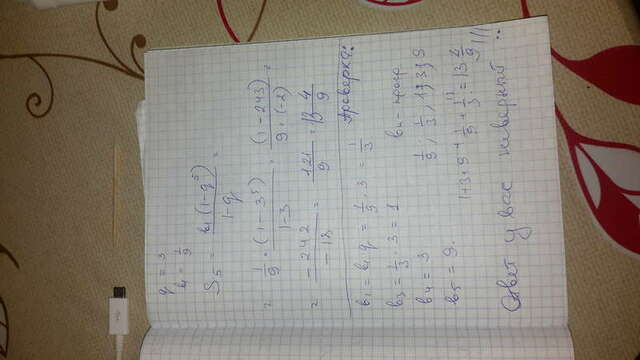 q = 3
b₁ = 1/9
S₅ = b₁(1-q⁵)/1-q =
= 1/9 · (1-3⁵)/1-3 = (1-243)/9·(-2) =
= -242/-18 = 121/9 = 13 4/9
Проверка:
b₂ = b₁q = 1/9 · 3 = 1/3
b₃ = 1/3 · 3 = 1
b₄ = 3
b₅ = 9.
bₙ - прогр
1/9; 1/3; 1; 3; 9
1+3+9+1/9+1/3 = 13 4/9 !!!
Ответ у вас неверный